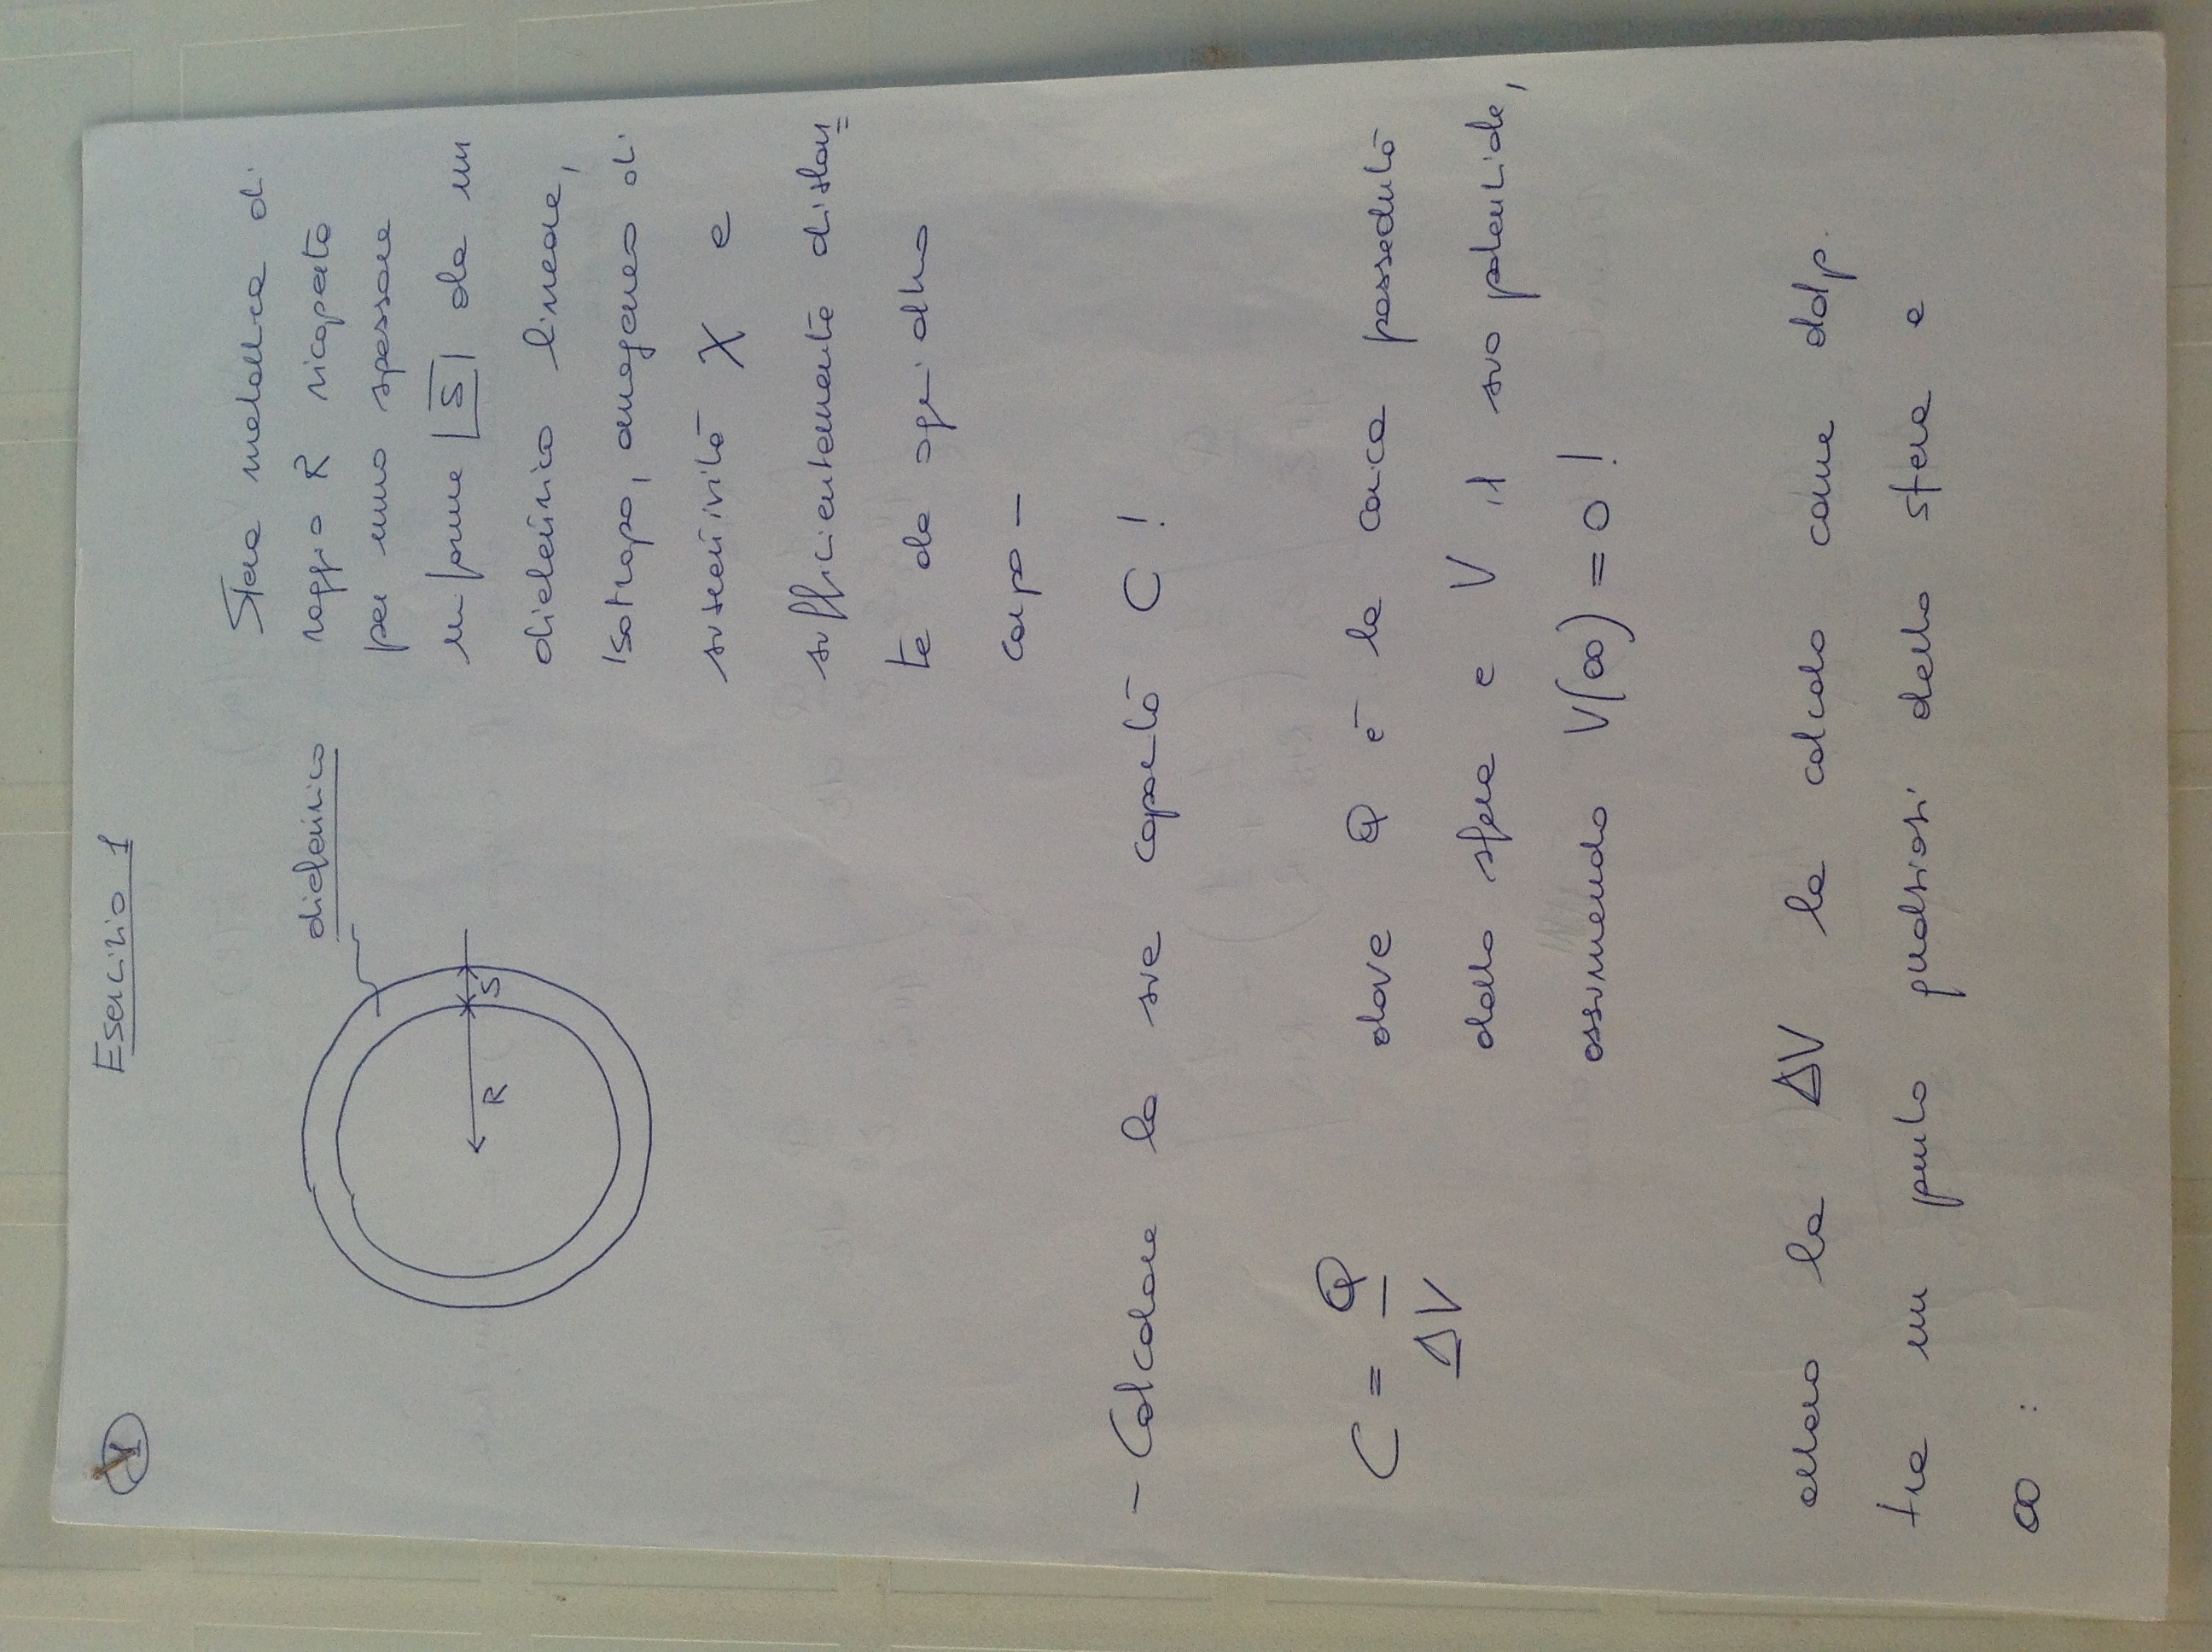 1
Esercizio 1
Sfera metallica di
raggio R ricoperta
per uno spessore
uniforme S da un
dielettrico lineare,
isotropo, omogeneo di
suscettività χ e
sufficientemente distan=
te da ogni altro
corpo -
dielettrico
R S
- Calcolare la sua capacità C !
C = Q / ΔV
dove Q è la carica posseduta
dalla sfera e V il suo potenziale,
assumendo V(∞) = 0 !
allora la ΔV la calcolo come ddp.
tra un punto qualsiasi della sfera e
∞ :